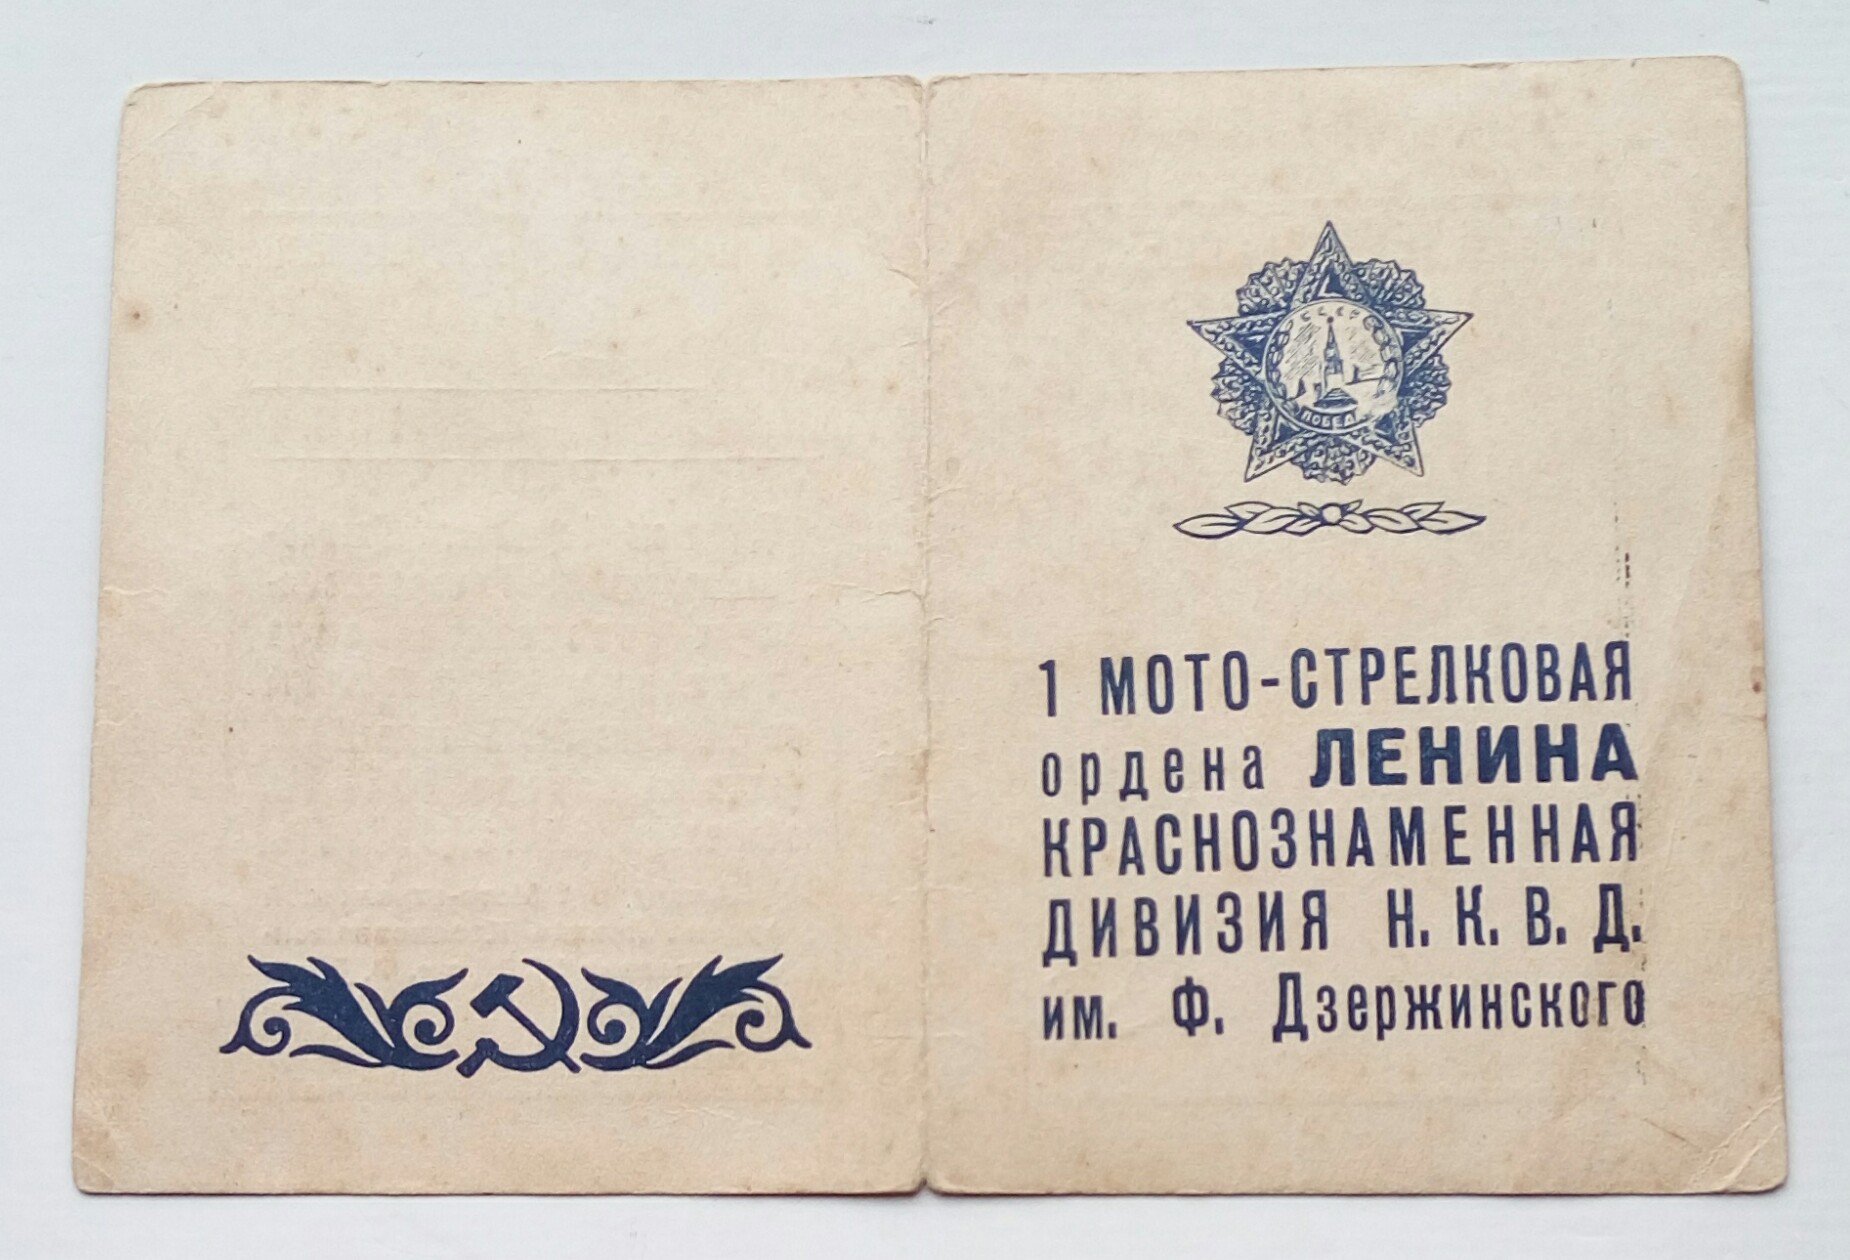 СССР
ПОБЕДА
1 МОТО-СТРЕЛКОВАЯ
ордена ЛЕНИНА
КРАСНОЗНАМЕННАЯ
ДИВИЗИЯ Н. К. В. Д.
им. Ф. Дзержинского